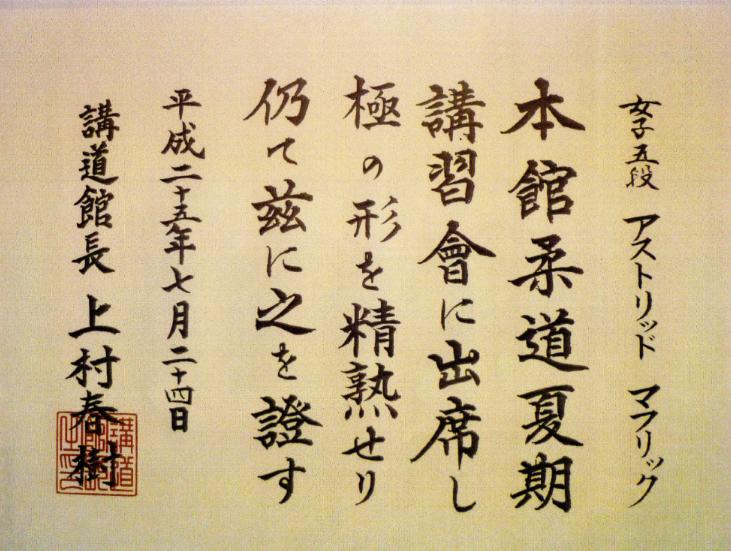 女子五段 アストリッド マフリック
本館柔道夏期
講習會に出席し
極の形を精熟せり
仍て茲に之を證す
平成二十五年七月二十四日
講道館長 上村春樹